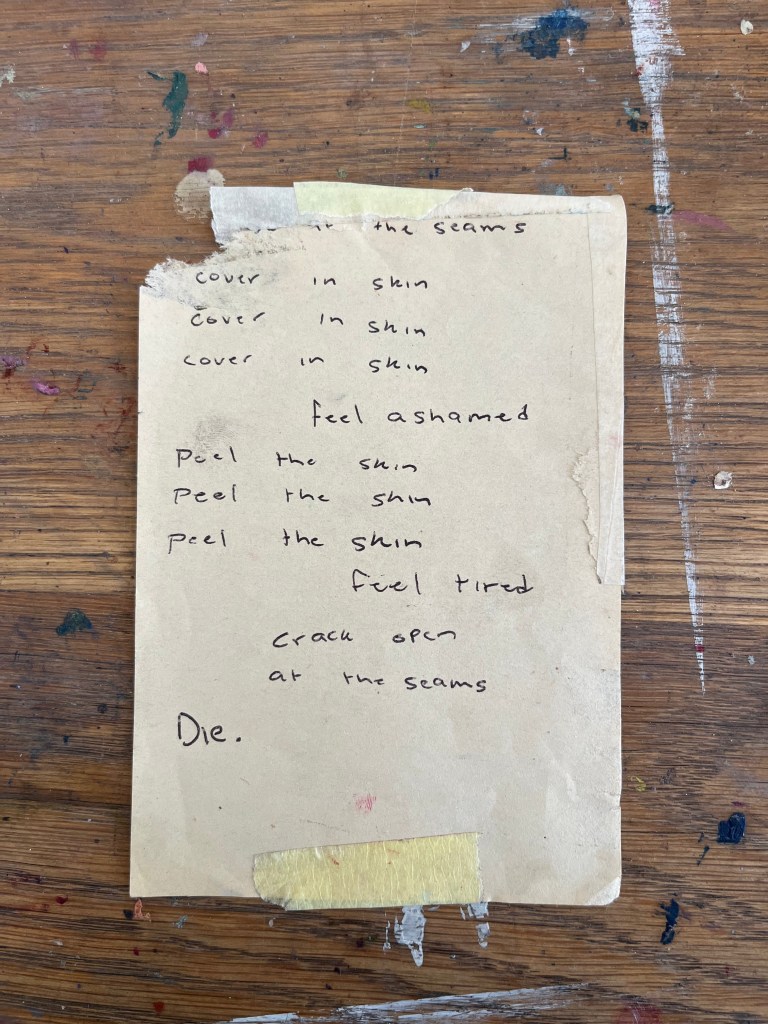 the seams
cover in skin
cover in skin
cover in skin
feel ashamed
Peel the skin
Peel the skin
peel the skin
feel tired
crack open
at the seams
Die.